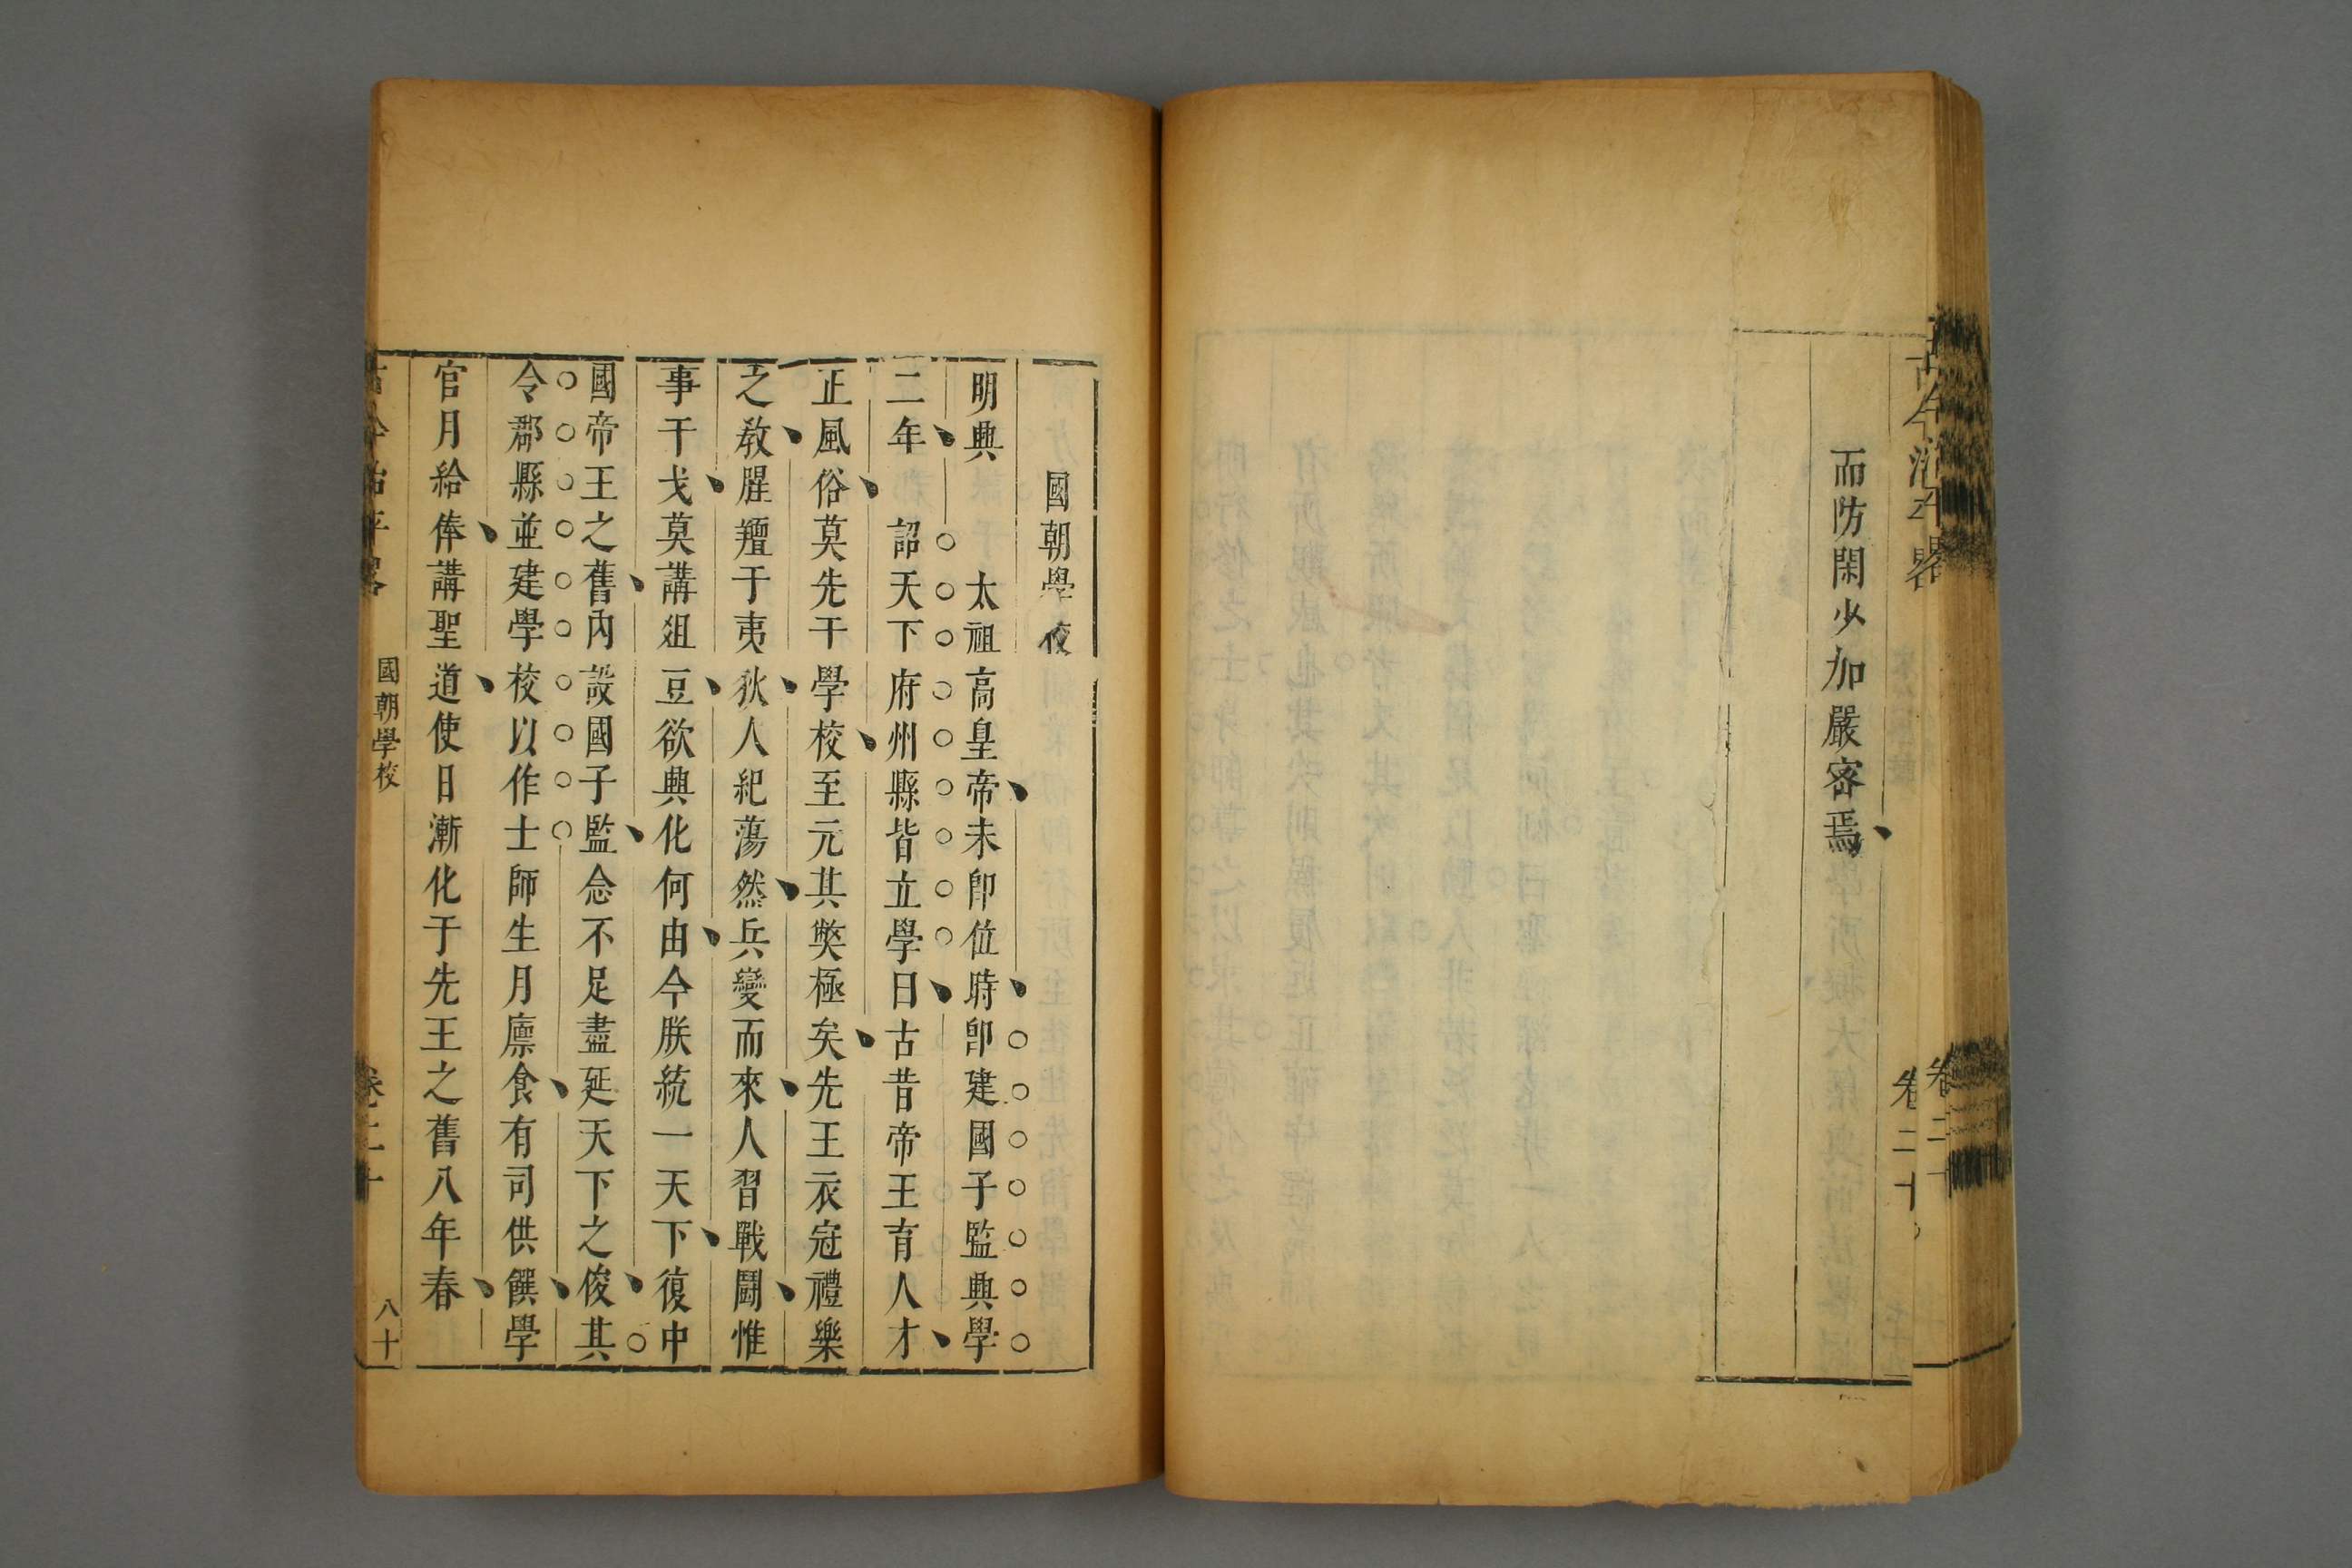 而防閑少加嚴密焉
卷二十
國朝學校
明興　太祖高皇帝未卽位時卽建國子監興學
二年　詔天下府州縣皆立學曰古昔帝王育人才
正風俗莫先于學校至元其獘極矣先王衣冠禮樂
之敎腥羶于夷狄人紀蕩然兵變而來人習戰鬪惟
事干戈莫講俎豆欲興化何由今朕統一天下復中
國帝王之舊內設國子監念不足盡延天下之俊其
令郡縣並建學校以作士師生月廪食有司供饌學
官月給俸講聖道使日漸化于先王之舊八年春
國朝學校
八十